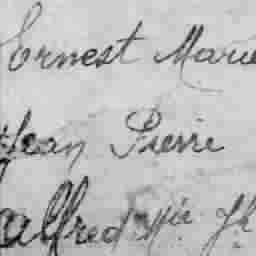 Ernest Marie
Jean Pierre
Alfred Mie Jh